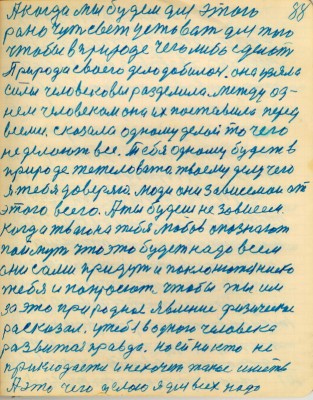 88
А когда мы будем для этого
рано чуть свет уставать для того
чтобы в природе чего либо сделать
Природа своего дела добилась, она узяла
силы человековы разделила. Между од-
нем человеком она их поставила перед
всеми. сказала одному делай то чего
не делают все. Тебя одному будет в
природе тебе твоему делу чего
я тебя доверяла. Люди они зависемая от
этого всего. А ты будеш не зависем.
когда твоего тебя любов опознают
поймут что это будет надо всем
они сами придут и поклонятся низко
тебя и попросют чтобы ты им
за это природное явление физическое
расказал. у тебя в одного человека
развитая правда. но ей никто не
прикладается и не хочут такое иметь
А это чего делаю я для всех надо